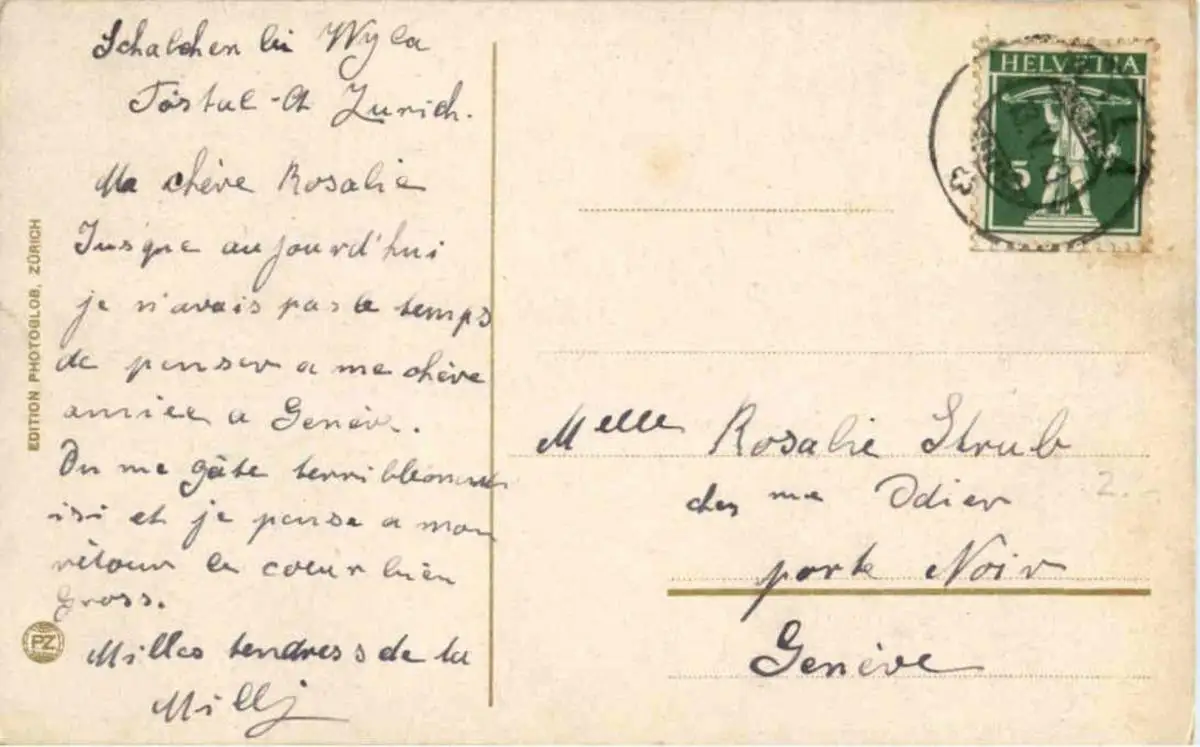 Schalchen bei Wyla
Töstal - Ct Zurich.
Ma chère Rosalie
Jusque aujourd'hui
je n'avais pas le temps
de penser a me chère
amiee a Genève.
On me gâte terriblement
isi et je pense a mon
rètour le coeur bien
gross.
Milles tendress de ta
Milly
EDITION PHOTOGLOB, ZÜRICH
PZ
HELVETIA
5
Melle Rosalie Strub
chez me Odier
porte Noir
Genève
2.-